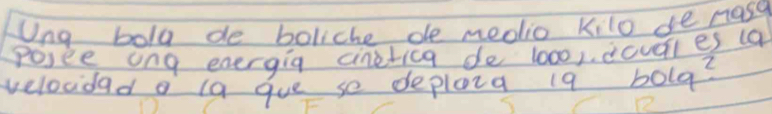 Una bola de boliche de medio kilo de masa
posee una energía cinética de 1000 J. ¿cuál es la
velocidad a la que se deplaza la bola?